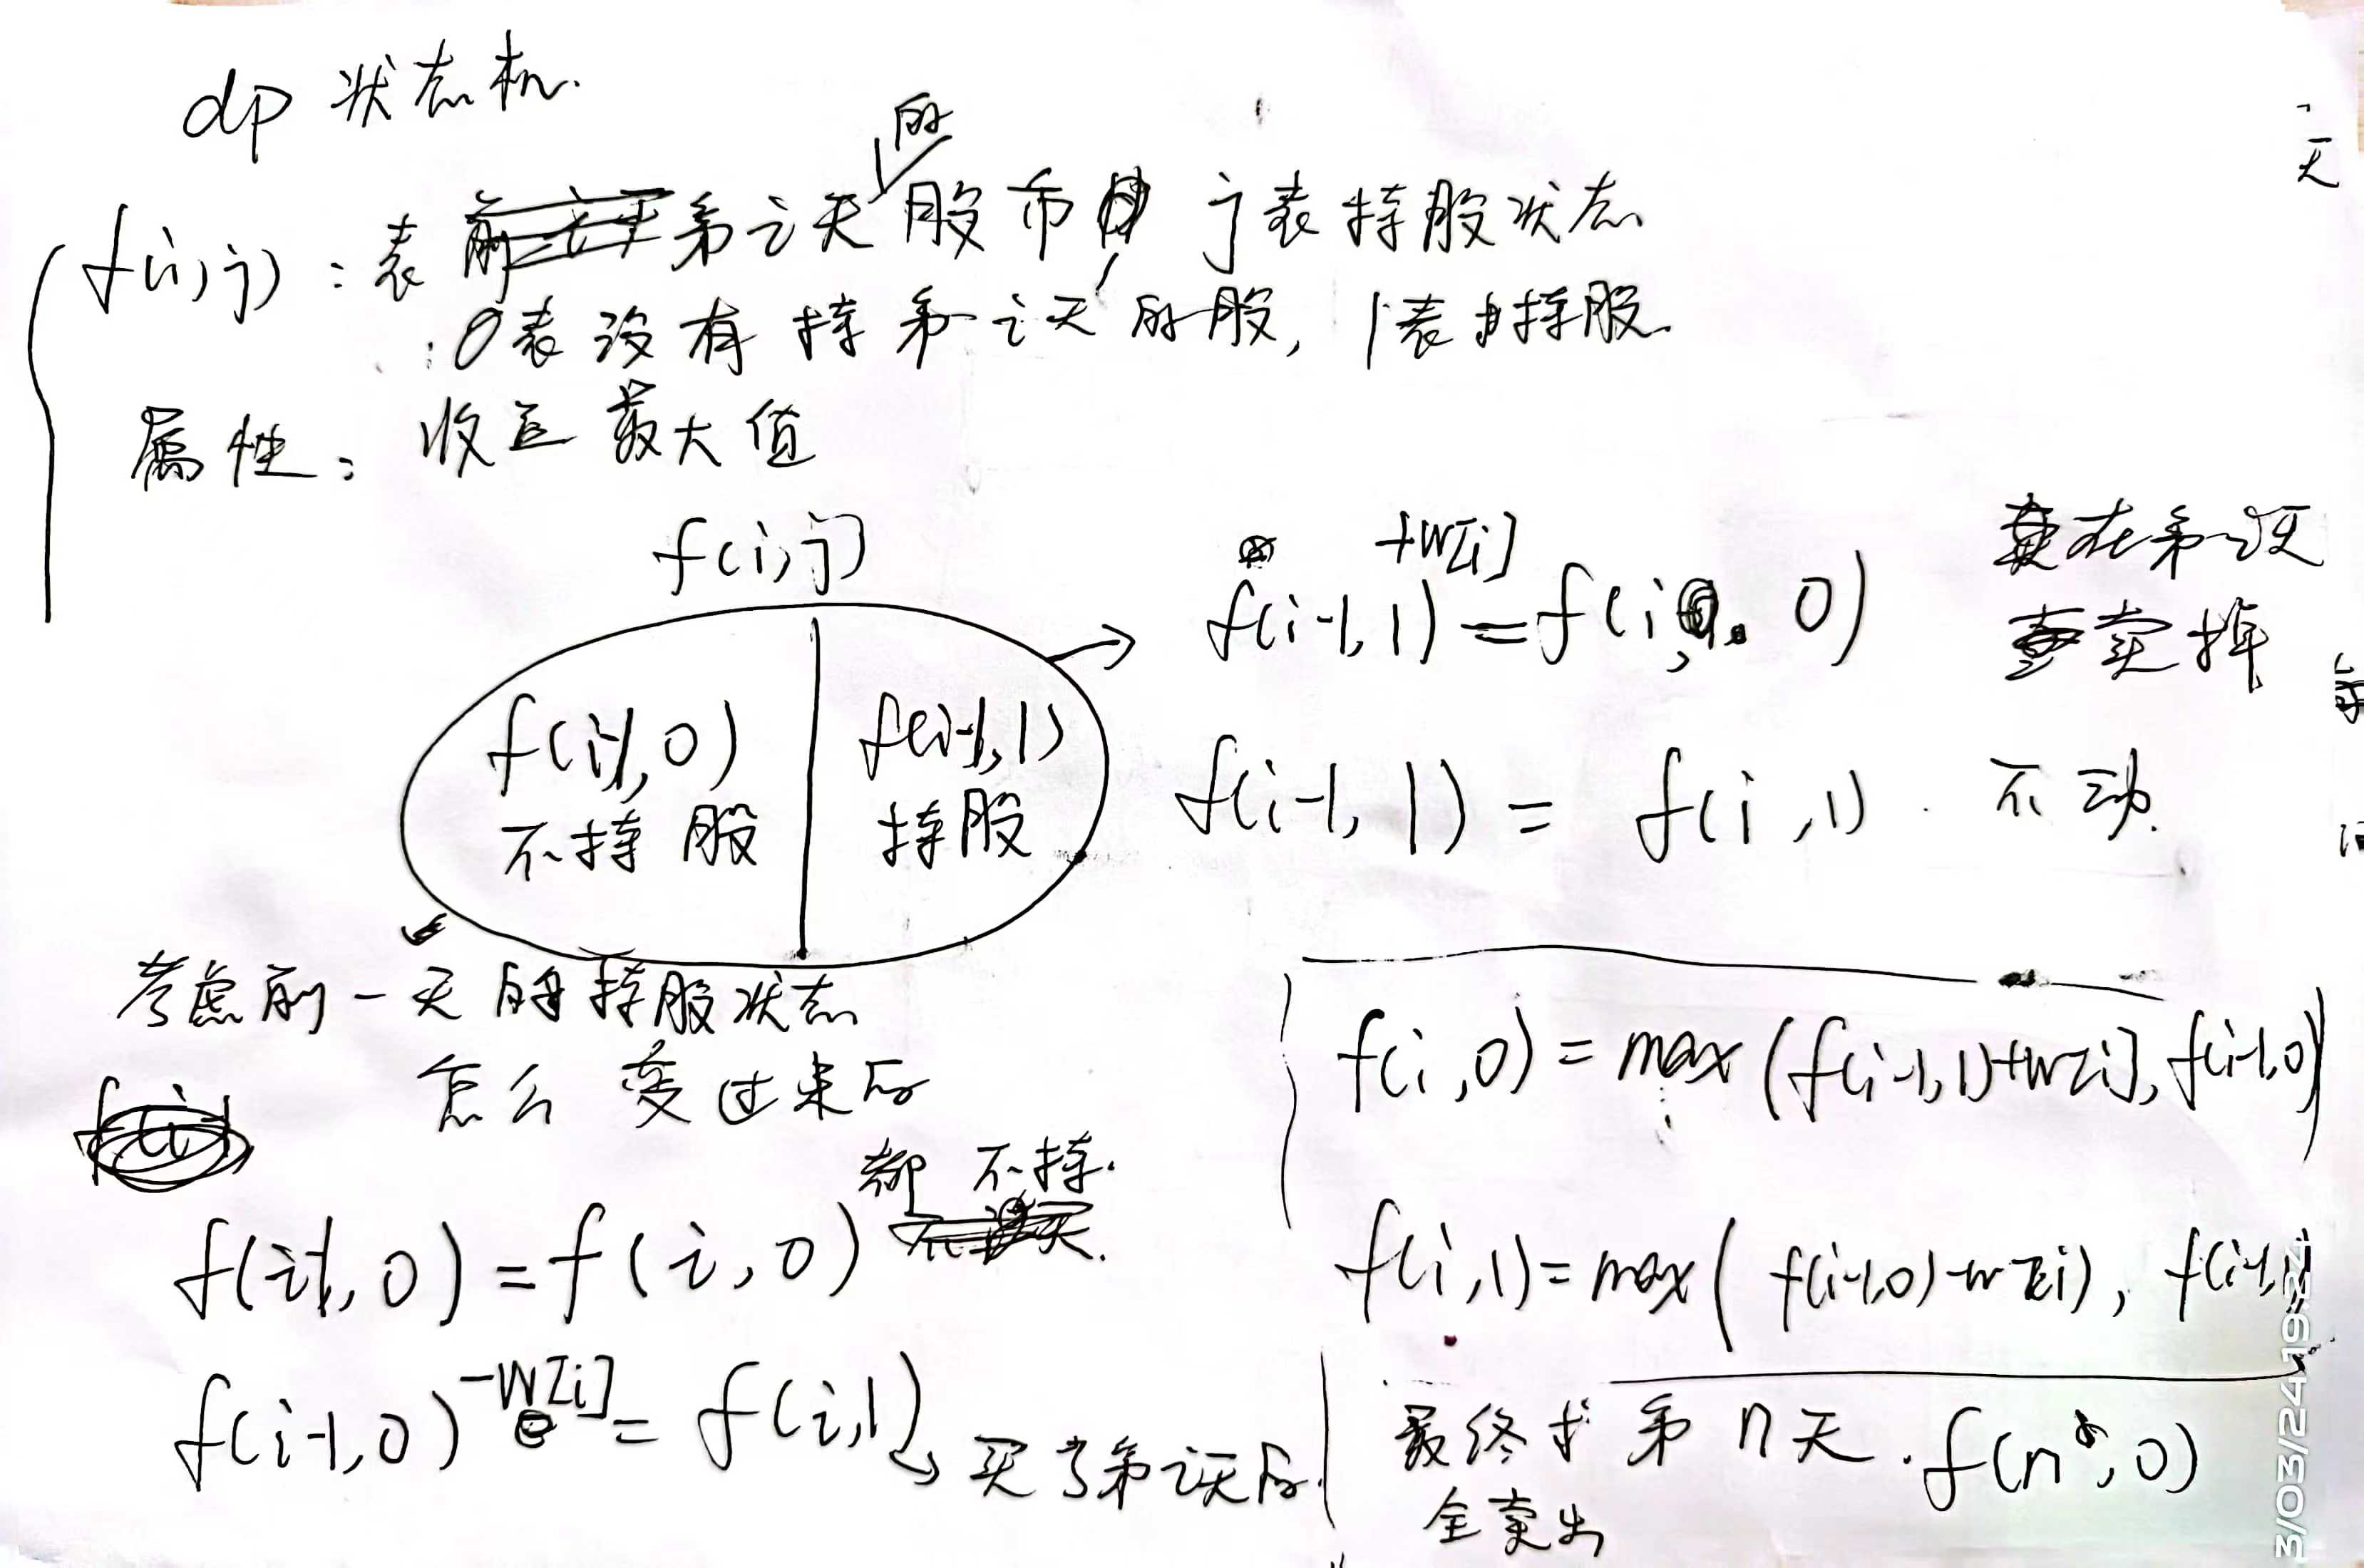 dp 状态机.
的
f(i,j) : 表 第 i 天 股市 j 表持股状态
0表没有持第i天的股, 1表持股.
属性: 收益最大值
f(i,j)
f(i-1,0) 不持股
f(i-1,1) 持股
+w[i]
f(i-1,1) = f(i, 0) 在第i天
卖掉
f(i-1,1) = f(i,1). 不动.
考虑前一天的持股状态
怎么变过来的
f(i-1,0) = f(i,0) 都不持.
f(i-1,0) -w[i] = f(i,1) 买了第i天的.
f(i,0) = max (f(i-1,1)+w[i], f(i-1,0)
f(i,1) = max( f(i-1,0)-w[i), f(i-1,1)
最终求第n天. f(n,0)
全卖出
天
3/03/24 19:24